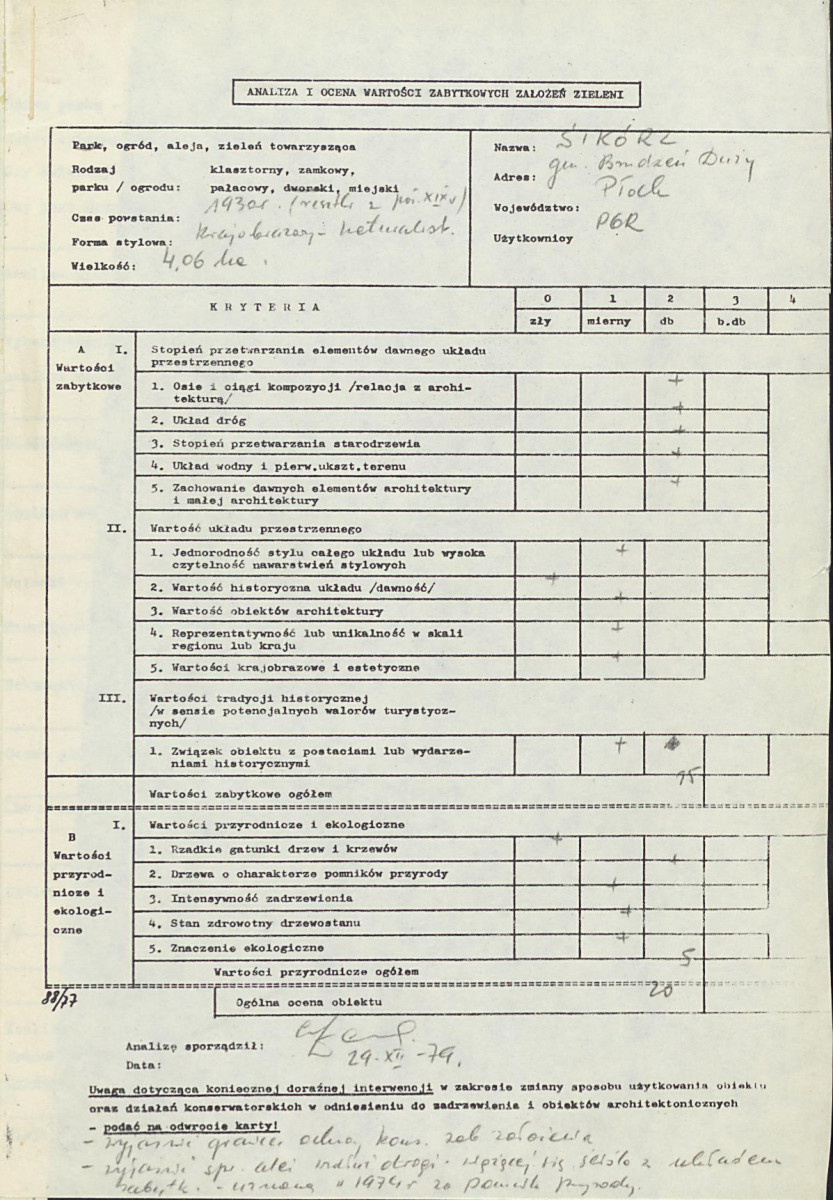 ANALIZA I OCENA WARTOŚCI ZABYTKOWYCH ZAŁOŻEŃ ZIELENI
Park, ogród, aleja, zieleń towarzysząca
Rodzaj parku / ogrodu: klasztorny, zamkowy, pałacowy, dworski, miejski
Czas powstania: 1930r. (resztki z poł. XIX w)
Forma stylowa: Krajobrazowy - naturalist.
Wielkość: 4,06 ha.
Nazwa: SIKÓRZ
Adres: gm. Brudzeń Duży
Województwo: Płock
Użytkownicy PGR
KRYTERIA 0 1 2 3 4
zły mierny db b.db
A I. Stopień przetwarzania elementów dawnego układu
Wartości zabytkowe
przestrzennego
1. Osie i ciągi kompozycji /relacja z archi-
tekturą/ +
2. Układ dróg +
3. Stopień przetwarzania starodrzewia +
4. Układ wodny i pierw.ukszt.terenu +
5. Zachowanie dawnych elementów architektury
i małej architektury +
II. Wartość układu przestrzennego
1. Jednorodność stylu całego układu lub wysoka
czytelność nawarstwień stylowych +
2. Wartość historyczna układu /dawność/ +
3. Wartość obiektów architektury +
4. Reprezentatywność lub unikalność w skali
regionu lub kraju +
5. Wartości krajobrazowe i estetyczne +
III. Wartości tradycji historycznej
/w sensie potencjalnych walorów turystycz-
nych/
1. Związek obiektu z postaciami lub wydarze-
niami historycznymi +
Wartości zabytkowe ogółem 15
B I. Wartości przyrodnicze i ekologiczne
Wartości przyrod-
nicze i ekologi-
czne
1. Rzadkie gatunki drzew i krzewów +
2. Drzewa o charakterze pomników przyrody +
3. Intensywność zadrzewienia +
4. Stan zdrowotny drzewostanu +
5. Znaczenie ekologiczne +
Wartości przyrodnicze ogółem 5
88/77
Ogólna ocena obiektu 20
Analizę sporządził:
Data: 29.XII-79.
Uwaga dotycząca koniecznej doraźnej interwencji w zakresie zmiany sposobu użytkowania obiektu
oraz działań konserwatorskich w odniesieniu do zadrzewienia i obiektów architektonicznych
- podać na odwrocie karty!
- wyjaśnić granice ochrony kons. zab założenia
- wyjaśnić spr. alei drogi wiążącej się ściśle z układem
zabytk. - uznaną w 1974r za Pomnik Przyrody.